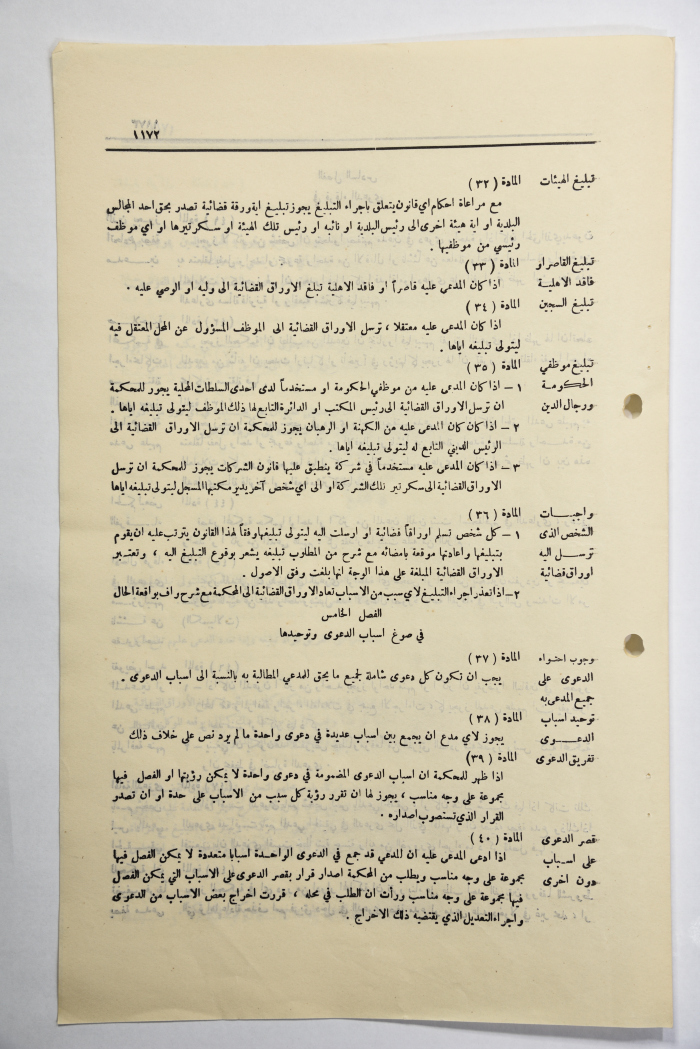 ١١٧٢
تبليغ الهيئات المادة (٣٢)
مع مراعاة احكام اي قانون يتعلق باجراء التبليغ يجوز تبليغ اية ورقة قضائية تصدر بحق احد المجالس
البلدية او اية هيئة اخرى الى رئيس البلدية او نائبه او رئيس تلك الهيئة او سكرتيرها او اي موظف
رئيسي من موظفيها .
تبليغ القاصر او المادة (٣٣)
فاقد الاهلية اذا كان المدعى عليه قاصراً او فاقد الاهلية تبلغ الاوراق القضائية الى وليه او الوصي عليه .
تبليغ السجين المادة (٣٤)
اذا كان المدعى عليه معتقلا ، ترسل الاوراق القضائية الى الموظف المسؤول عن المحل المعتقل فيه
ليتولى تبليغه اياها .
تبليغ موظفي المادة (٣٥)
الحكومة ١ – اذا كان المدعى عليه من موظفي الحكومة او مستخدماً لدى احدى السلطات المحلية يجوز للمحكمة
ورجال الدين ان ترسل الاوراق القضائية الى رئيس المكتب او الدائرة التابع لها ذلك الموظف ليتولى تبليغه اياها .
٢ – اذا كان كان المدعى عليه من الكهنة او الرهبان يجوز للمحكمة ان ترسل الاوراق القضائية الى
الرئيس الديني التابع له ليتولى تبليغه اياها .
٣ – اذا كان المدعى عليه مستخدماً في شركة ينطبق عليها قانون الشركات يجوز للمحكمة ان ترسل
الاوراق القضائية الى سكرتير تلك الشركة او الى اي شخص آخر يدير مكتبها المسجل ليتولى تبليغه اياها
واجبات المادة (٣٦)
الشخص الذي ١ – كل شخص تسلم اوراقاً قضائية او ارسلت اليه ليتولى تبليغها وفقاً لهذا القانون يترتب عليه ان يقوم
ترسل اليه بتبليغها واعادتها موقعة بامضائه مع شرح من المطلوب تبليغه يشعر بوقوع التبليغ اليه ، وتعتبر
اوراق قضائية الاوراق القضائية المبلغة على هذا الوجه انها بلغت وفق الاصول .
٢– اذا تعذر اجراء التبليغ لاي سبب من الاسباب تعاد الاوراق القضائية الى المحكمة مع شرح واف بواقعة الحال
الفصل الخامس
في صوغ اسباب الدعوى وتوحيدها
وجوب احتواء المادة (٣٧)
الدعوى على يجب ان تكون كل دعوى شاملة لجميع ما يحق للمدعي المطالبة به بالنسبة الى اسباب الدعوى .
جميع المدعى به
توحيد اسباب المادة (٣٨)
الدعوى يجوز لاي مدع ان يجمع بين اسباب عديدة في دعوى واحدة ما لم يرد نص على خلاف ذلك
تفريق الدعوى المادة (٣٩)
اذا ظهر للمحكمة ان اسباب الدعوى المضمومة في دعوى واحدة لا يمكن رؤيتها او الفصل فيها
مجموعة على وجه مناسب ، يجوز لها ان تقرر رؤية كل سبب من الاسباب على حدة او ان تصدر
القرار الذي تستصوب اصداره .
قصر الدعوى المادة (٤٠)
على اسباب اذا ادعى المدعى عليه ان المدعي قد جمع في الدعوى الواحدة اسبابا متعددة لا يمكن الفصل فيها
دون اخرى مجموعة على وجه مناسب ويطلب من المحكمة اصدار قرار بقصر الدعوى على الاسباب التي يمكن الفصل
فيها مجموعة على وجه مناسب ورأت ان الطلب في محله ، قررت اخراج بعض الاسباب من الدعوى
واجراء التعديل الذي يقتضيه ذلك الاخراج .